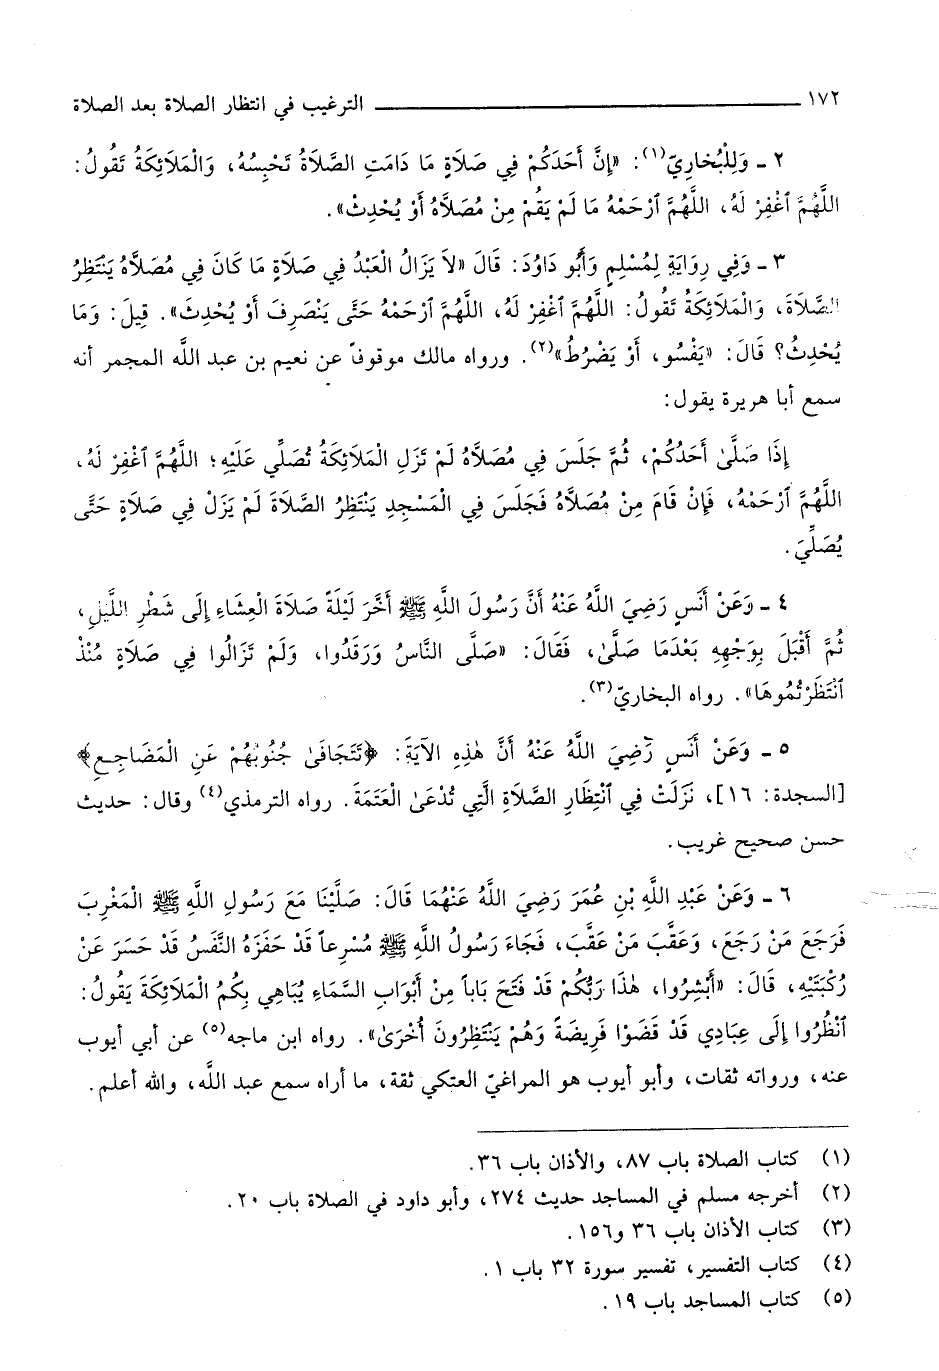 ١٧٢ ــــــــــ الترغيب في انتظار الصلاة بعد الصلاة
٢ ـ وَلِلْبُخَارِيّ(١): «إِنَّ أَحَدَكُمْ فِي صَلَاةٍ مَا دَامَتِ الصَّلَاةُ تَحْبِسُهُ، وَالْمَلَائِكَةُ تَقُولُ:
اللَّهُمَّ ٱغْفِرْ لَهُ، اللَّهُمَّ ٱرْحَمْهُ مَا لَمْ يَقُمْ مِنْ مُصَلَّاهُ أَوْ يُحْدِثْ».
٣ ـ وَفِي رِوَايَةٍ لِمُسْلِمٍ وَأَبُو دَاوُدَ: قَالَ «لاَ يَزَالُ الْعَبْدُ فِي صَلَاةٍ مَا كَانَ فِي مُصَلَّاهُ يَنْتَظِرُ
الصَّلَاةَ، وَالْمَلَائِكَةُ تَقُولُ: اللَّهُمَّ ٱغْفِرْ لَهُ، اللَّهُمَّ ٱرْحَمْهُ حَتَّى يَنْصَرِفَ أَوْ يُحْدِثَ». قِيلَ: وَمَا
يُحْدِثُ؟ قَالَ: «يَفْسُو، أَوْ يَضْرُطُ»(٢). ورواه مالك موقوفاً عن نعيم بن عبد اللَّه المجمر أنه
سمع أبا هريرة يقول:
إِذَا صَلَّىٰ أَحَدُكُمْ، ثُمَّ جَلَسَ فِي مُصَلَّاهُ لَمْ تَزَلِ الْمَلَائِكَةُ تُصَلِّي عَلَيْهِ؛ اللَّهُمَّ ٱغْفِرْ لَهُ،
اللَّهُمَّ ٱرْحَمْهُ، فَإِنْ قَامَ مِنْ مُصَلَّاهُ فَجَلَسَ فِي الْمَسْجِدِ يَنْتَظِرُ الصَّلَاةَ لَمْ يَزَلْ فِي صَلَاةٍ حَتَّى
يُصَلِّيَ.
٤ ـ وَعَنْ أَنَسٍ رَضِيَ اللَّهُ عَنْهُ أَنَّ رَسُولَ اللَّهِ ﷺ أَخَّرَ لَيْلَةً صَلَاةَ الْعِشَاءِ إِلَى شَطْرِ اللَّيْلِ،
ثُمَّ أَقْبَلَ بِوَجْهِهِ بَعْدَمَا صَلَّىٰ، فَقَالَ: «صَلَّى النَّاسُ وَرَقَدُوا، وَلَمْ تَزَالُوا فِي صَلَاةٍ مُنْذُ
ٱنْتَظَرْتُمُوهَا». رواه البخاريّ(٣).
٥ ـ وَعَنْ أَنَسٍ رَضِيَ اللَّهُ عَنْهُ أَنَّ هٰذِهِ الآيَةَ: ﴿تَتَجَافَىٰ جُنُوبُهُمْ عَنِ الْمَضَاجِعِ﴾
[السجدة: ١٦]، نَزَلَتْ فِي ٱنْتِظَارِ الصَّلَاةِ الَّتِي تُدْعَىٰ الْعَتَمَةَ. رواه الترمذي(٤) وقال: حديث
حسن صحيح غريب.
٦ ـ وَعَنْ عَبْدِ اللَّهِ بْنِ عُمَرَ رَضِيَ اللَّهُ عَنْهُمَا قَالَ: صَلَّيْنَا مَعَ رَسُولِ اللَّهِ ﷺ الْمَغْرِبَ
فَرَجَعَ مَنْ رَجَعَ، وَعَقَّبَ مَنْ عَقَّبَ، فَجَاءَ رَسُولُ اللَّهِ ﷺ مُسْرِعاً قَدْ حَفَزَهُ النَّفَسُ قَدْ حَسَرَ عَنْ
رُكْبَتَيْهِ، قَالَ: «أَبْشِرُوا، هٰذَا رَبُّكُمْ قَدْ فَتَحَ بَاباً مِنْ أَبْوَابِ السَّمَاءِ يُبَاهِي بِكُمُ الْمَلَائِكَةَ يَقُولُ:
ٱنْظُرُوا إِلَى عِبَادِي قَدْ قَضَوْا فَرِيضَةً وَهُمْ يَنْتَظِرُونَ أُخْرَىٰ». رواه ابن ماجه(٥) عن أبي أيوب
عنه، ورواته ثقات، وأبو أيوب هو المراغيّ العتكي ثقة، ما أراه سمع عبد اللَّه، والله أعلم.
(١) كتاب الصلاة باب ٨٧، والأذان باب ٣٦.
(٢) أخرجه مسلم في المساجد حديث ٢٧٤، وأبو داود في الصلاة باب ٢٠.
(٣) كتاب الأذان باب ٣٦ و١٥٦.
(٤) كتاب التفسير، تفسير سورة ٣٢ باب ١.
(٥) كتاب المساجد باب ١٩.